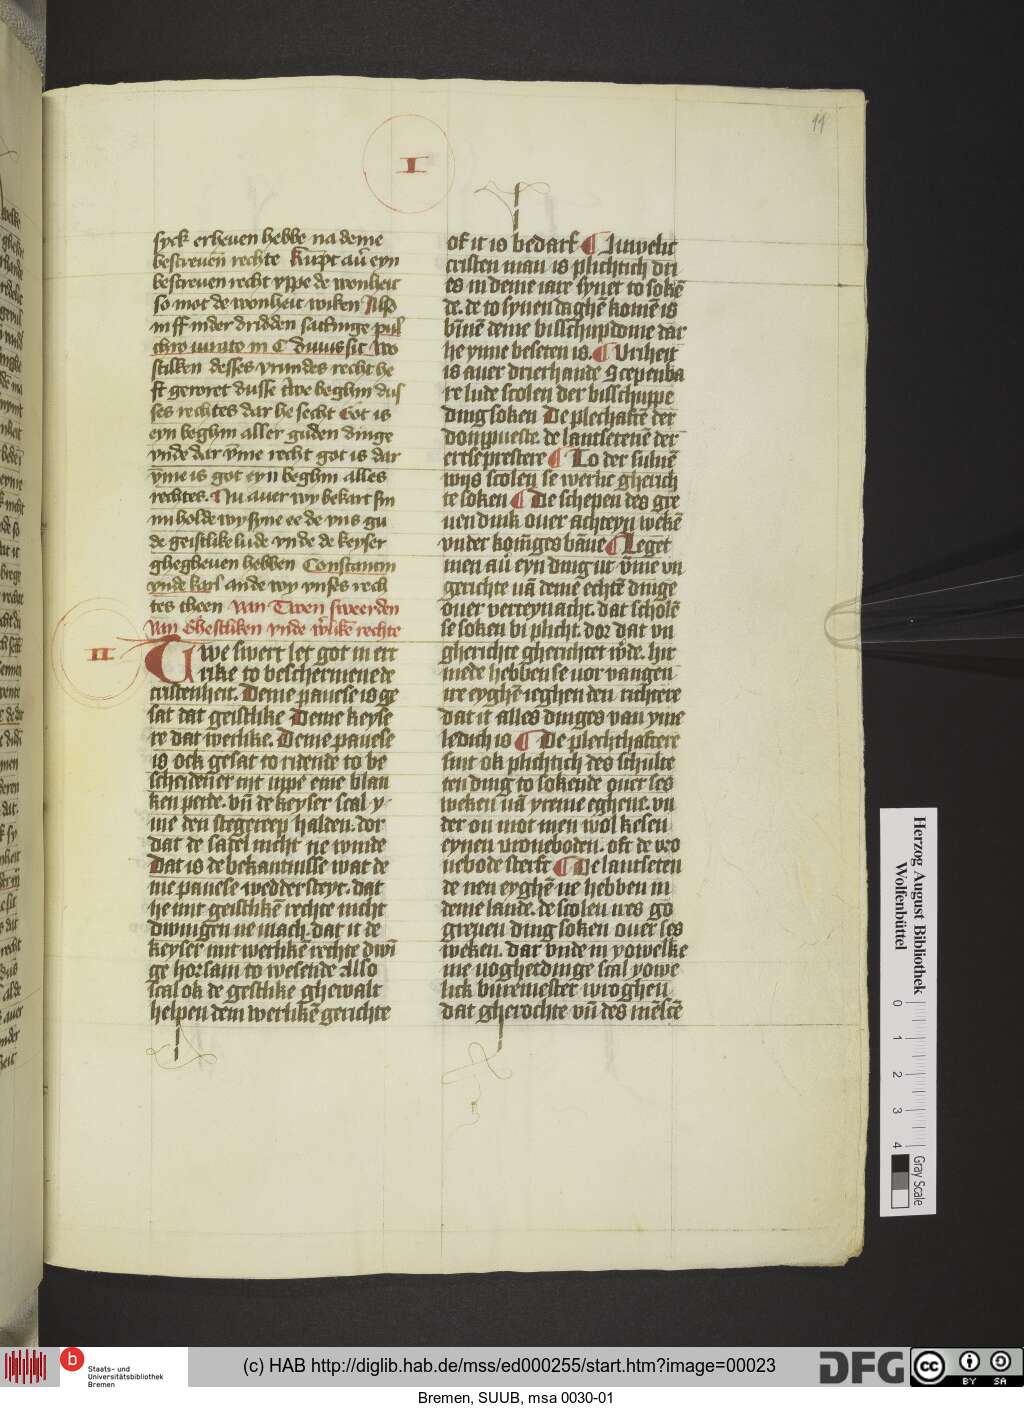 11
I
syck erheuen hebbe na deme
bescreuen rechte kumpt auer eyn
bescreuen recht vppe de wonheit
so mot de wonheit wiken Also
in ff in der dridden satinge
iurato in C
stikken desses vrundes recht he
ft geroret dusse twe beghin dus
ses rechtes dar he secht Got is
eyn beghin aller guden dinge
vnde dar vme recht got is dar
vme is got eyn beghin alles
rechtes. Nu auer wy bekart sin
nu holde wy syne ee de vns gu
de geistlike lude vnde de keyser
ghegheuen hebben Constantin
vnde karl ande wy vnses rech
tes theen Van Twen sweerden
van Ghestliken vnde werlike rechte
II
Twe swert let got in ert
rike to beschermenede
cristenheit. Deme pauese is ge
sat dat geistlike Deme keyse
re dat wertlike. Deme pauese
is ock gesat to ridende to be
scheidener tit uppe eme blan
ken perde. vn̄ de keyser scal y
me den stegereep halden. dor
dat de satel nicht ne winde
Dat is de bekantnisse wat de
me pauese wedder steyt. dat
he mit geistlikē rechte nicht
dwingen ne mach. dat it de
keyser mit wertlikē rechte dwī
ge horsam to wesende also
scal ok de gestlike ghewalt
helpen dem wertlikē gerichte
of it is bedarf ¶ Juwelic
cristen man is plichtich dri
es in deme iare synet to sokē
de. de to synen daghē komē is
bīnē deme bisschupdome dar
he ynne beseten is. ¶ Vriheit
is auer drierhande Scepenba
re lude scolen der bisschuppe
ding soken De plechaftē der
domprueste. de lantsetenē der
ertseprestere ¶ To der suluē
wijs scolen se wertlic gherich
te soken ¶ De schepen des gre
uen dink ouer achteyn wekē
vnder konīges bāne ¶ Leget
men auer eyn ding ut vme vn
gerichte uā deme echtē dinge
ouer verteynacht. dat scholē
se soken bi plicht. dor dat vn
gherichte gherichtet wde. hir
mede hebben se uor vangen
ire eyghē ieghen den richtere
dat it alles dinges van yme
ledich is ¶ De plechthaftere
sint ok plichtich des schulte
ten ding to sokende ouer ses
weken uā yreme eghene. vn
der on mot men wol kesen
eynen uroneboden. oft de vro
nebode sterft ¶ De lantseten
de nen eyghē ne hebben in
deme lande. de scolen ires go
greuen ding soken ouer ses
weken. dar vnde in yowelke
me uoghetdinge scal yowe
lick buremester wroghen
dat gherochte vn̄ des mēscē
Herzog August Bibliothek
Wolfenbüttel
0 1 2 3 4
Gray Scale
Staats- und
Universitätsbibliothek
Bremen
(c) HAB http://diglib.hab.de/mss/ed000255/start.htm?image=00023
DFG
cc BY SA
Bremen, SUUB, msa 0030-01